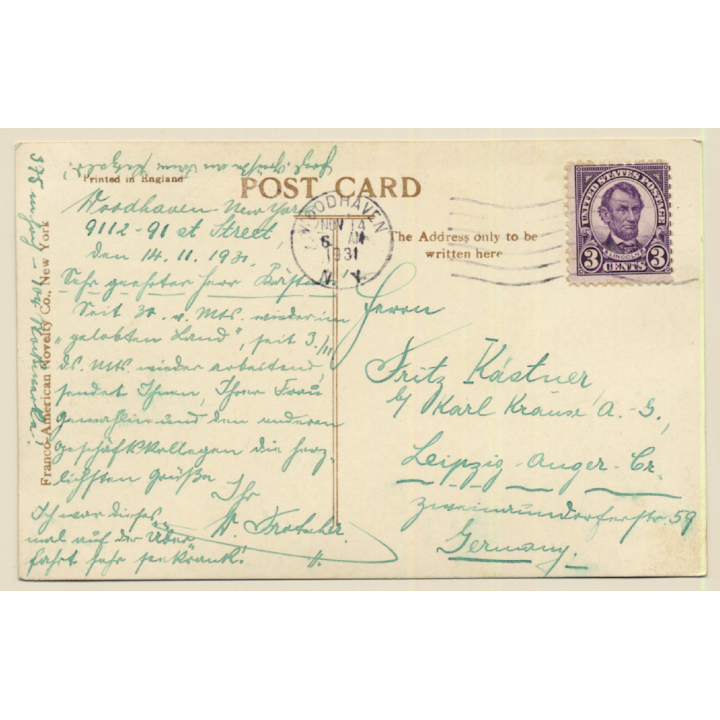 Printed in England
POST CARD
Woodhaven New York
9112-91 st Street,
den 14. 11. 1931.
Sehr geehrter Herr Kästner
Seit 30. v. Mts. wieder im
"gelobten Land", seit 3./11
ds. Mts. wieder arbeitend,
sendet Ihnen, Ihrer Frau
Gemahlin und den anderen
Geschäftskollegen die herz-
lichsten Grüße
Ihr
W. Frotscher.
Ich war dieses
mal auf der Über
fahrt sehr seekrank!
Franco-American Novelty Co., New York
WOODHAVEN
NOV 14
6 AM
1931
N. Y.
The Address only to be
written here
UNITED STATES POSTAGE
LINCOLN
3 CENTS 3
Herrn
Fritz Kästner
b/ Karl Krause A.-G.,
Leipzig-Anger-Cr.
Zweinaundorferstr. 59
Germany.